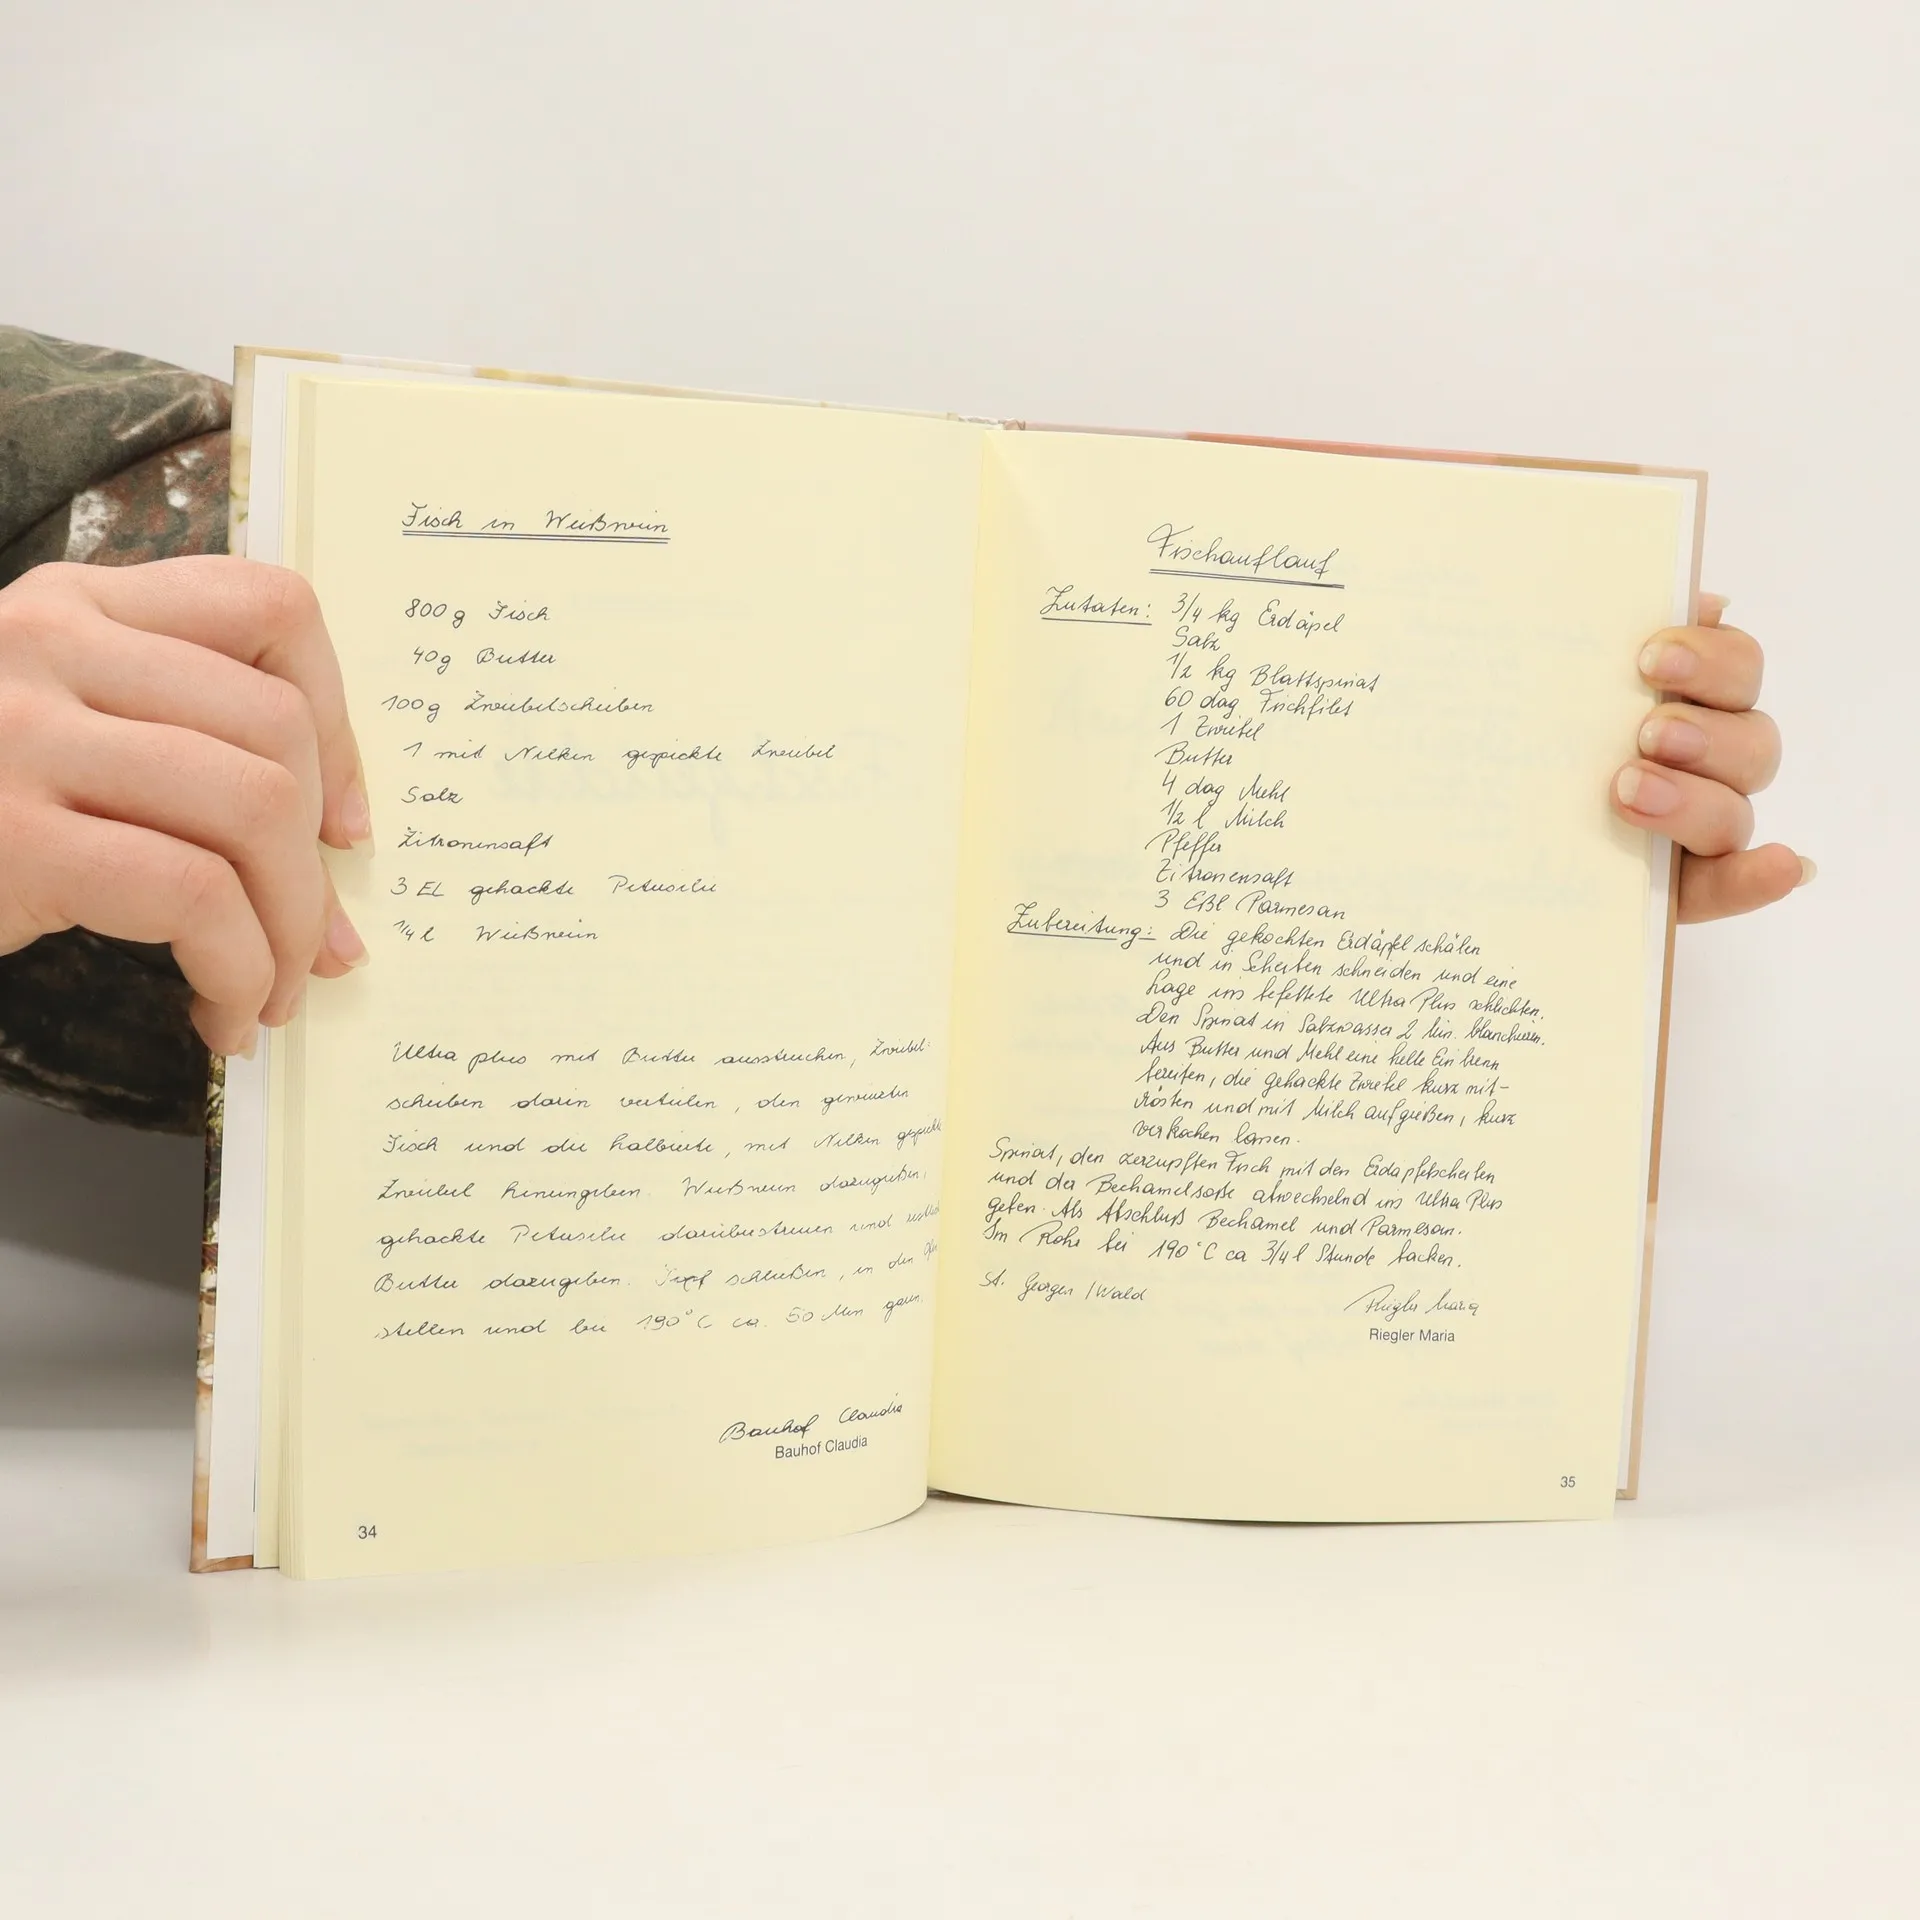 Fisch in Weißwein
800 g Fisch
40 g Butter
100 g Zwiebelscheiben
1 mit Nelken gespickte Zwiebel
Salz
Zitronensaft
3 EL gehackte Petersilie
1/4 l Weißwein
Ultra plus mit Butter ausstreichen, Zwiebel-
scheiben darin verteilen, den gewürzten
Fisch und die halbierte, mit Nelken gespickte
Zwiebel hineingeben. Weißwein dazugießen,
gehackte Petersilie darüberstreuen und
Butter dazugeben. Topf schließen, in den
stellen und bei 190°C ca. 50 Min garen.
Bauhof Claudia
Bauhof Claudia
34
Fischauflauf
Zutaten: 3/4 kg Erdäpfel
Salz
1/2 kg Blattspinat
60 dag Fischfilet
1 Zwiebel
Butter
4 dag Mehl
1/2 l Milch
Pfeffer
Zitronensaft
3 Eßl Parmesan
Zubereitung: Die gekochten Erdäpfel schälen
und in Scheiben schneiden und eine
Lage ins befettete Ultra Plus schlichten.
Den Spinat in Salzwasser 2 Min. blanchieren.
Aus Butter und Mehl eine helle Einbrenn
bereiten, die gehackte Zwiebel kurz mit-
rösten und mit Milch aufgießen, kurz
verkochen lassen.
Spinat, den zerzupften Fisch mit den Erdapfelscheiben
und der Bechamelsoße abwechselnd ins Ultra Plus
geben. Als Abschluß Bechamel und Parmesan.
Im Rohr bei 190°C ca 3/4 l Stunde backen.
St. Georgen / Wald
Riegler Maria
Riegler Maria
35